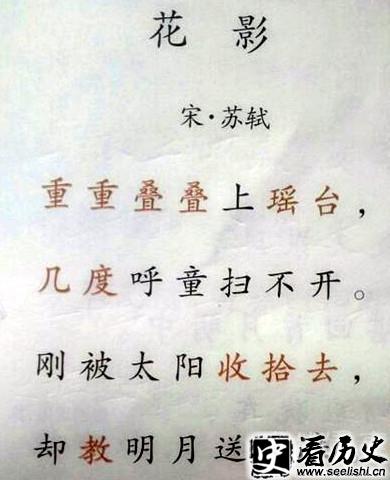 花 影
宋·苏轼
重重叠叠上瑶台，
几度呼童扫不开。
刚被太阳收拾去，
却教明月送
史看历史
www.seelishi.cn